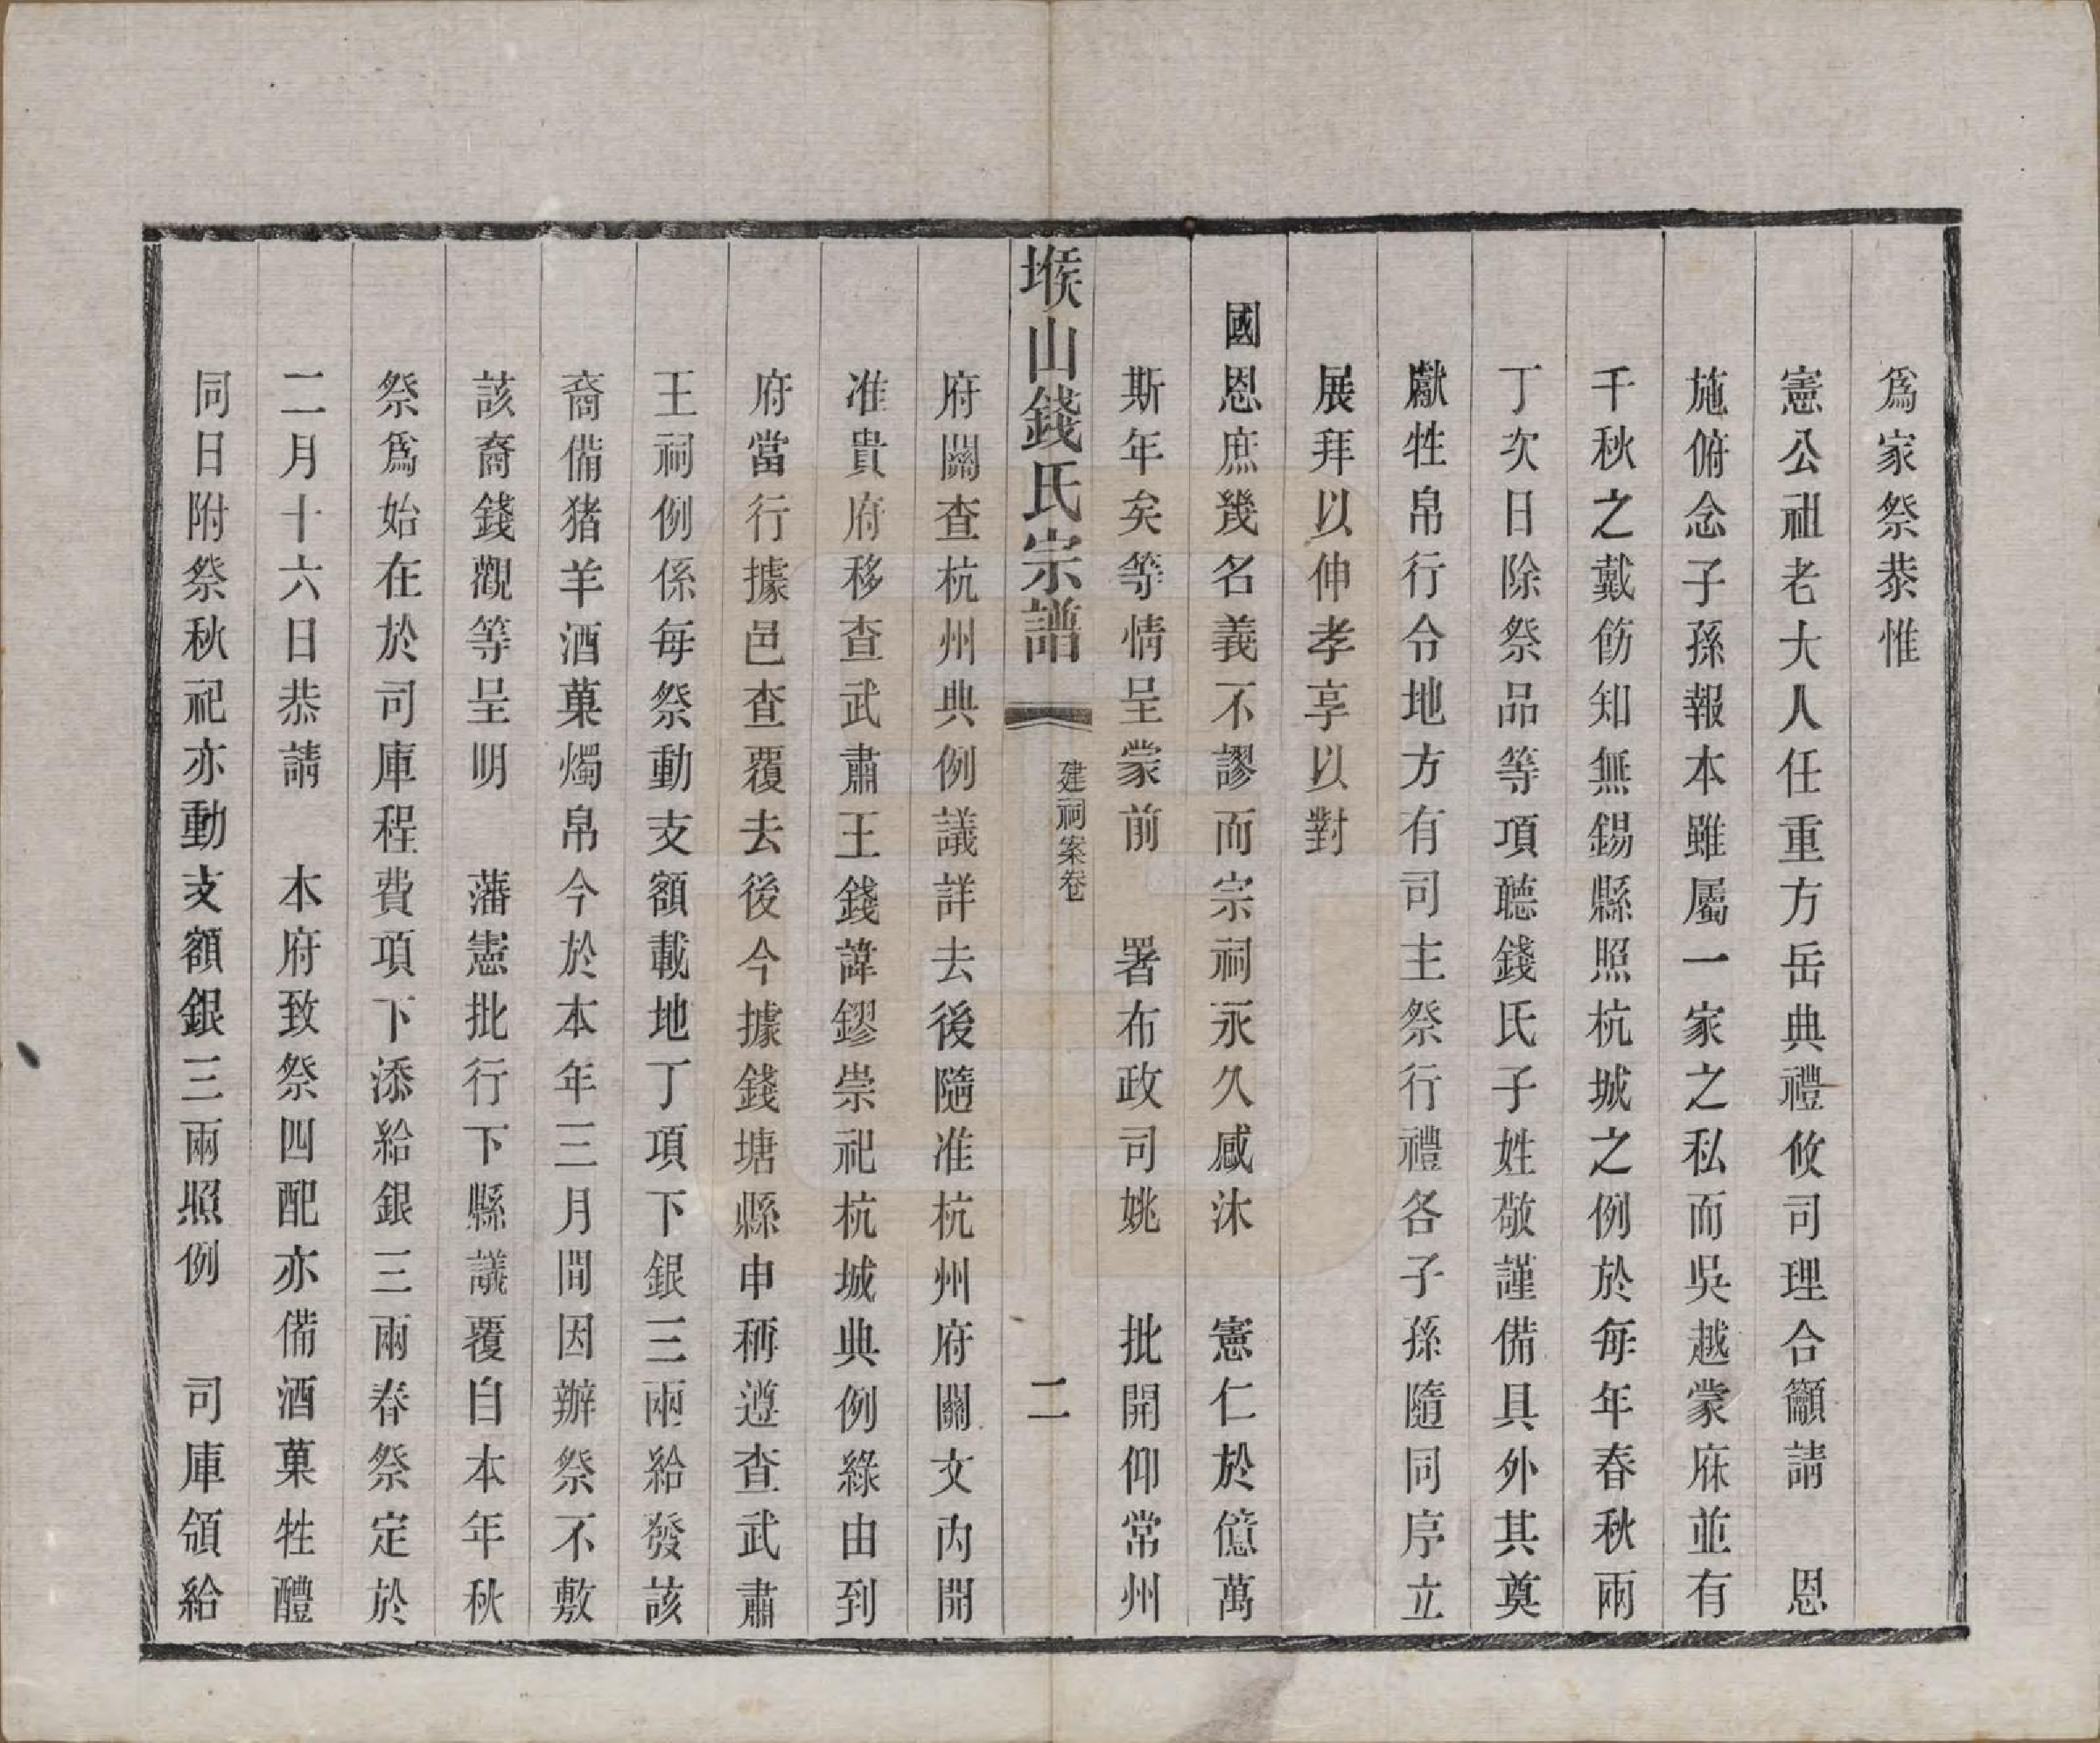 為家祭恭惟
憲公祖老大人任重方岳典禮攸司理合籲請　恩
施俯念子孫報本雖屬一家之私而吳越蒙庥並有
千秋之戴飭知無錫縣照杭城之例於每年春秋兩
丁次日除祭品等項聽錢氏子姓敬謹備具外其奠
獻牲帛行令地方有司主祭行禮各子孫隨同序立
展拜以伸孝享以對
國恩庶幾名義不謬而宗祠永久感沐　憲仁於億萬
斯年矣等情呈蒙前　署布政司姚　批開仰常州
堠山錢氏宗譜　建祠案卷　二
府關查杭州典例議詳去後隨准杭州府關文內開
准貴府移查武肅王錢諱鏐崇祀杭城典例緣由到
府當行據邑查覆去後今據錢塘縣申稱遵查武肅
王祠例係每祭動支額載地丁項下銀三兩給發該
裔備猪羊酒菓燭帛今於本年三月間因辦祭不敷
該裔錢觀等呈明　藩憲批行下縣議覆自本年秋
祭為始在於司庫程費項下添給銀三兩春祭定於
二月十六日恭請　本府致祭四配亦備酒菓牲醴
同日附祭秋祀亦動支額銀三兩照例　司庫頒給